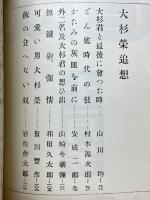 大杉榮追想
大杉君と最後に會つた時……山川均
どん底時代の彼……村木源次郎
かたみの灰皿を前に……安成二郎
外二名及大杉君の思ひ出……山崎今朝彌
無鐵砲强情……和田久太郎
可愛い男大杉榮……賀川豐彦
飯の食へない奴……岩佐作太郎